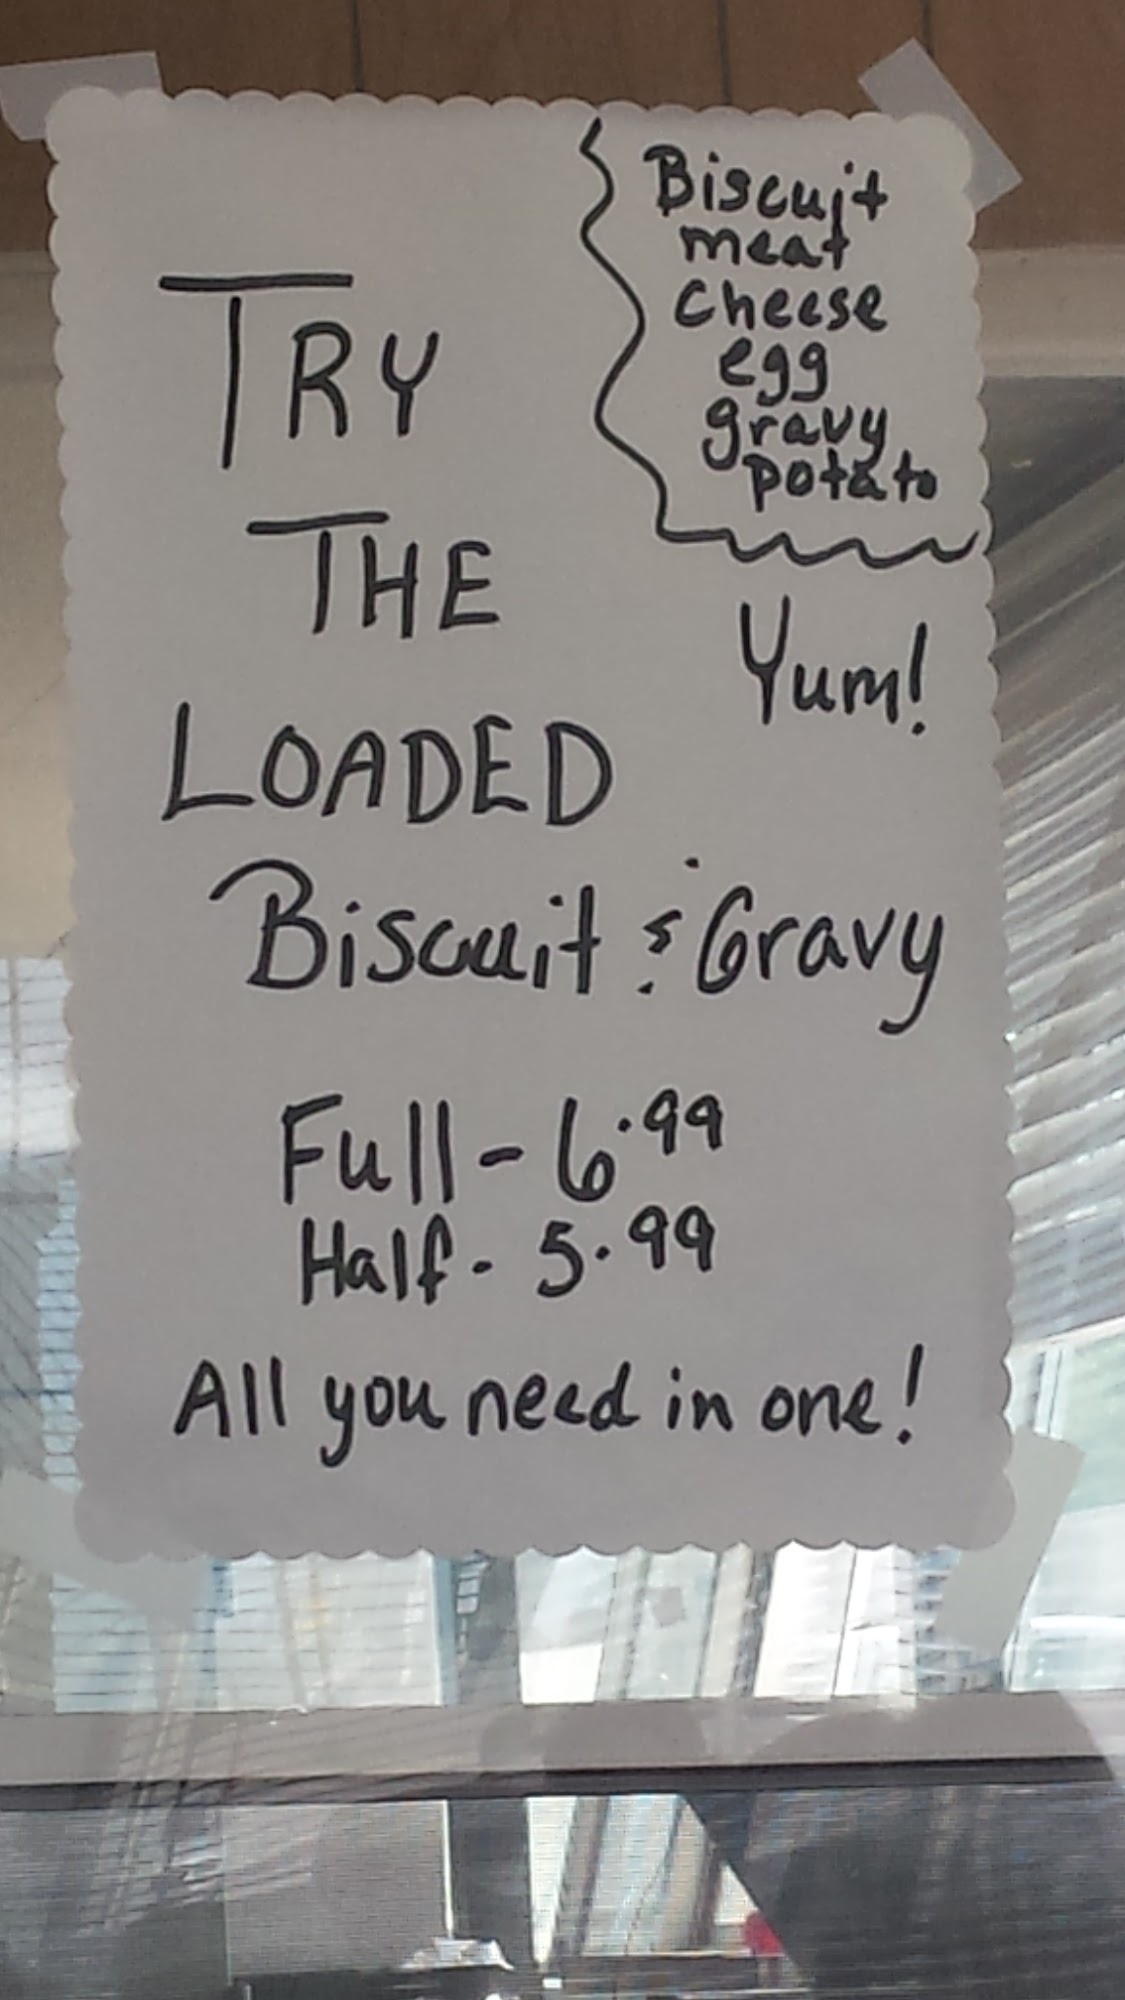 Biscuit
meat
cheese
egg
gravy
potato
Yum!
TRY
THE
LOADED
Biscuit & Gravy
Full - 6.99
Half - 5.99
All you need in one!